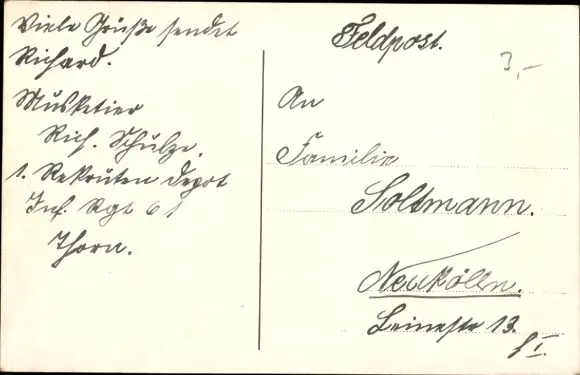 Viele Grüße sendet
Richard.
Musketier
Rich. Schulze.
1. Rekruten Depot
Inf. Rgt 61
Thorn.
Feldpost.
3,-
An
Familie
Soltmann.
Neukölln.
Leinestr 13.
I.